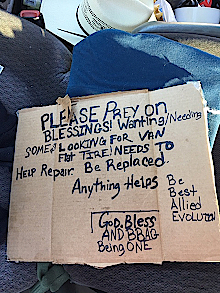 PLEASE PREY ON
BLESSINGS! Wanting/Needing
SOME, LOOKING FOR VAN
Flat TIRE! NEEDS TO
HELP Repair. Be Replaced.
Anything Helps
Be
Best
Allied
EVOLUTION
GOD, Bless
AND BBAG
Being ONE